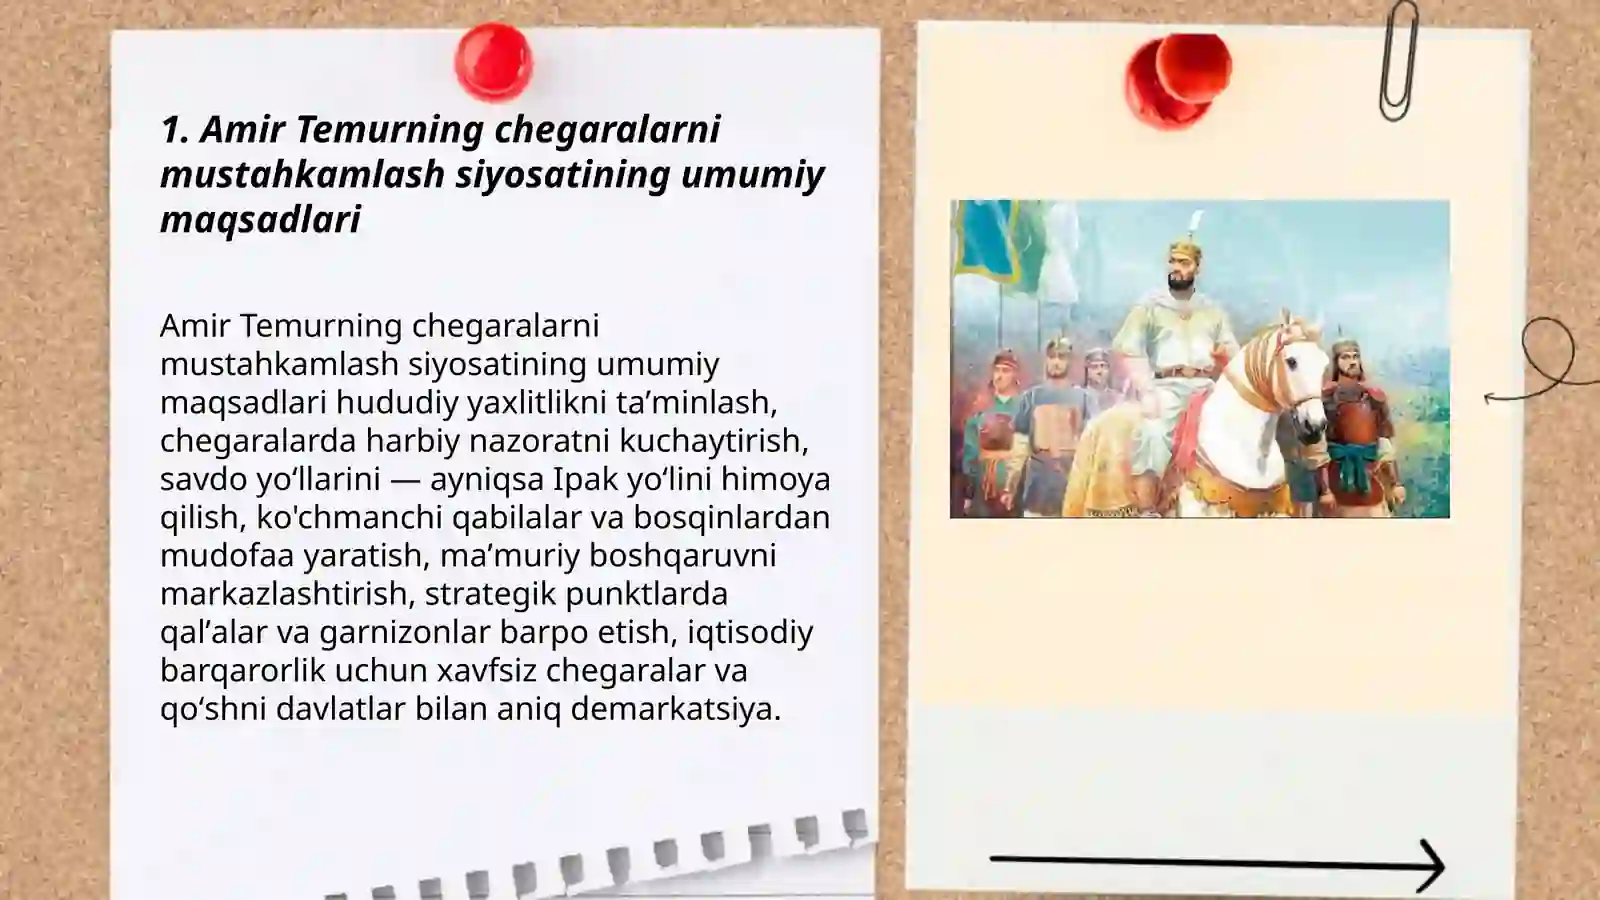 1. Amir Temurning chegaralarni
mustahkamlash siyosatining umumiy
maqsadlari
Amir Temurning chegaralarni
mustahkamlash siyosatining umumiy
maqsadlari hududiy yaxlitlikni ta’minlash,
chegaralarda harbiy nazoratni kuchaytirish,
savdo yo‘llarini — ayniqsa Ipak yo‘lini himoya
qilish, ko'chmanchi qabilalar va bosqinlardan
mudofaa yaratish, ma’muriy boshqaruvni
markazlashtirish, strategik punktlarda
qal’alar va garnizonlar barpo etish, iqtisodiy
barqarorlik uchun xavfsiz chegaralar va
qo‘shni davlatlar bilan aniq demarkatsiya.